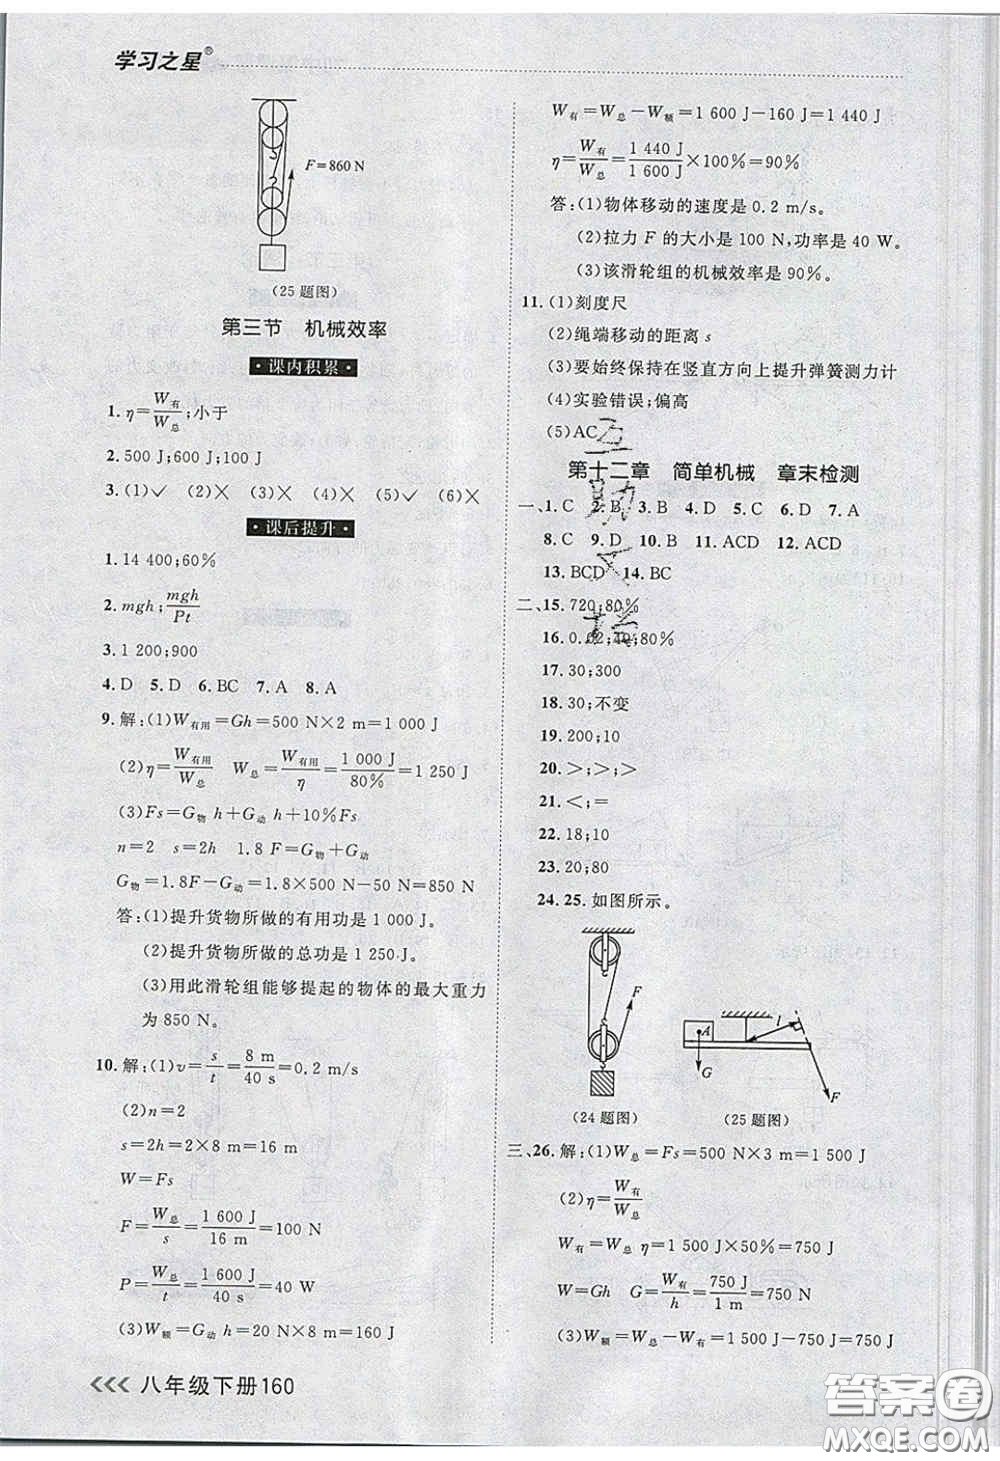 学习之星®
F=860 N
(25题图)
第三节 机械效率
·课内积累·
1. η=W有/W总;小于
2. 500 J;600 J;100 J
3. (1)✓ (2)× (3)× (4)× (5)✓ (6)×
·课后提升·
1. 14 400;60%
2. mgh;mgh/Pt
3. 1 200;900
4. D 5. D 6. BC 7. A 8. A
9. 解:(1)W有用=Gh=500 N×2 m=1 000 J
(2)η=W有用/W总 W总=W有用/η=1 000 J/80%=1 250 J
(3)Fs=G物 h+G动 h+10%Fs
n=2 s=2h 1.8 F=G物+G动
G物=1.8F-G动=1.8×500 N-50 N=850 N
答:(1)提升货物所做的有用功是 1 000 J。
(2)提升货物所做的总功是 1 250 J。
(3)用此滑轮组能够提起的物体的最大重力
为 850 N。
10. 解:(1)v=s/t=8 m/40 s=0.2 m/s
(2)n=2
s=2h=2×8 m=16 m
W=Fs
F=W总/s=1 600 J/16 m=100 N
P=W总/t=1 600 J/40 s=40 W
(3)W额=G动 h=20 N×8 m=160 J
八年级下册160
W有=W总-W额=1 600 J-160 J=1 440 J
η=W有/W总=1 440 J/1 600 J×100%=90%
答:(1)物体移动的速度是 0.2 m/s。
(2)拉力 F 的大小是 100 N,功率是 40 W。
(3)该滑轮组的机械效率是 90%。
11. (1)刻度尺
(2)绳端移动的距离 s
(3)要始终保持在竖直方向上提升弹簧测力计
(4)实验错误;偏高
(5)AC
第十二章 简单机械 章末检测
一、1. C 2. B 3. B 4. D 5. C 6. D 7. A
8. C 9. D 10. B 11. ACD 12. ACD
13. BCD 14. BC
二、15. 720;80%
16. 0.02;40;80%
17. 30;300
18. 30;不变
19. 200;10
20. >;>;>
21. <;=
22. 18;10
23. 20;80
24. 25. 如图所示。
F
A
l
G
F
(24题图) (25题图)
三、26. 解:(1)W总=Fs=500 N×3 m=1 500 J
(2)η=W有/W总
W有=W总 η=1 500 J×50%=750 J
W=Gh G=W有/h=750 J/1 m=750 N
(3)W额=W总-W有=1 500 J-750 J=750 J
答案圈
MXQE.COM